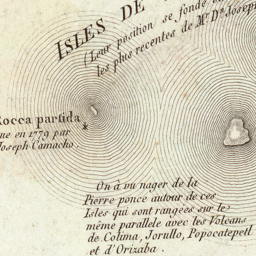 ISLES DE
(Leur position se fonde
les plus recentes de Mr. Dn. Joseph
Rocca partida
ue en 1779 par
Joseph Camacho.
On a vu nager de la
Pierre ponce autour de ces
Isles qui sont rangées sur le
même parallele avec les Volcans
de Colima, Jorullo, Popocatepetl
et d'Orizaba.